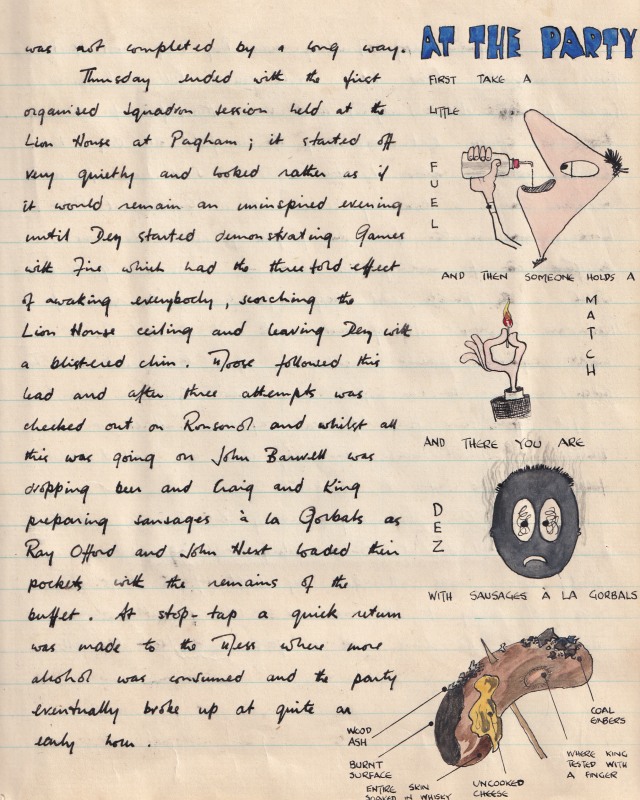 was not completed by a long way.
Thursday ended with the first
organised squadron session held at the
Lion House at Pagham; it started off
very quietly and looked rather as if
it would remain an uninspired evening
until Dez started demonstrating Games
with Fire which had the threefold effect
of awaking everybody, scorching the
Lion House ceiling and leaving Dez with
a blistered chin. Moose followed this
lead and after three attempts was
checked out on Ronsonol and whilst all
this was going on John Barwell was
dropping beer and Craig and King
preparing sausages à la Gorbals as
Ray Offord and John Hext loaded their
pockets with the remains of the
buffet. At stop-tap a quick return
was made to the Mess where more
alcohol was consumed and the party
eventually broke up at quite an
early hour.
AT THE PARTY
FIRST TAKE A
LITTLE
FUEL
AND THEN SOMEONE HOLDS A
MATCH
AND THERE YOU ARE
DEZ
WITH SAUSAGES À LA GORBALS
WOOD
ASH
BURNT
SURFACE
ENTIRE SKIN
SOAKED IN WHISKY
UNCOOKED
CHEESE
WHERE KING
TESTED WITH
A FINGER
COAL
EMBERS